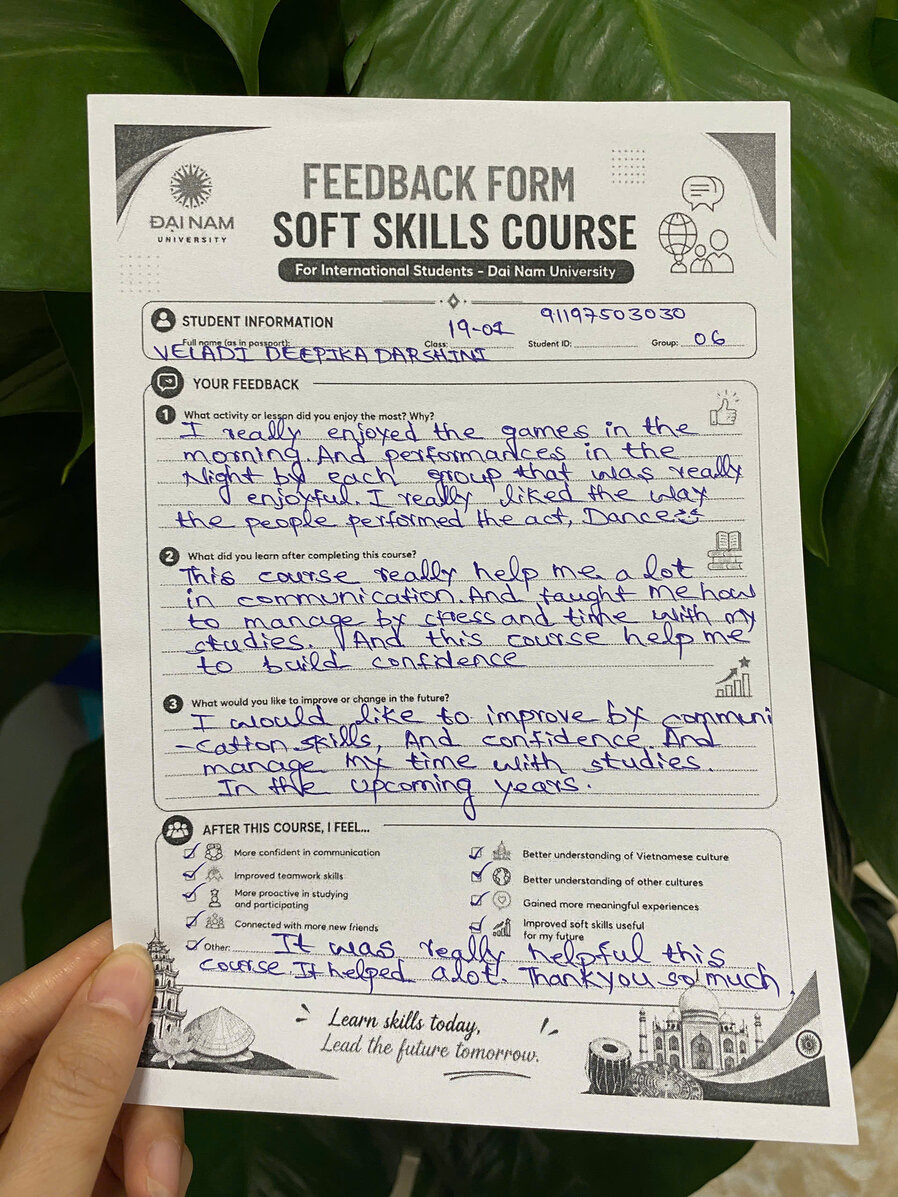 ĐẠI NAM
UNIVERSITY
FEEDBACK FORM
SOFT SKILLS COURSE
For International Students - Dai Nam University
STUDENT INFORMATION
Full name (as in passport): VELADI DEEPIKA DARSHINI Class: 19-01 Student ID: 91197503030 Group: 06
YOUR FEEDBACK
1 What activity or lesson did you enjoy the most? Why?
I really enjoyed the games in the
morning. And performances in the
Night by each group that was really
enjoyful. I really liked the way
the people performed the act, Dance
2 What did you learn after completing this course?
This course really help me a lot
in communication. And taught me how
to manage by stress and time with my
studies. And this course help me
to build confidence
3 What would you like to improve or change in the future?
I would like to improve by communi
-cation skills, And confidence. And
manage my time with studies.
In the upcoming years.
AFTER THIS COURSE, I FEEL...
More confident in communication
Improved teamwork skills
More proactive in studying
and participating
Connected with more new friends
Better understanding of Vietnamese culture
Better understanding of other cultures
Gained more meaningful experiences
Improved soft skills useful
for my future
Other: It was really helpful this
course. It helped a lot. Thankyou so much.
Learn skills today,
Lead the future tomorrow.